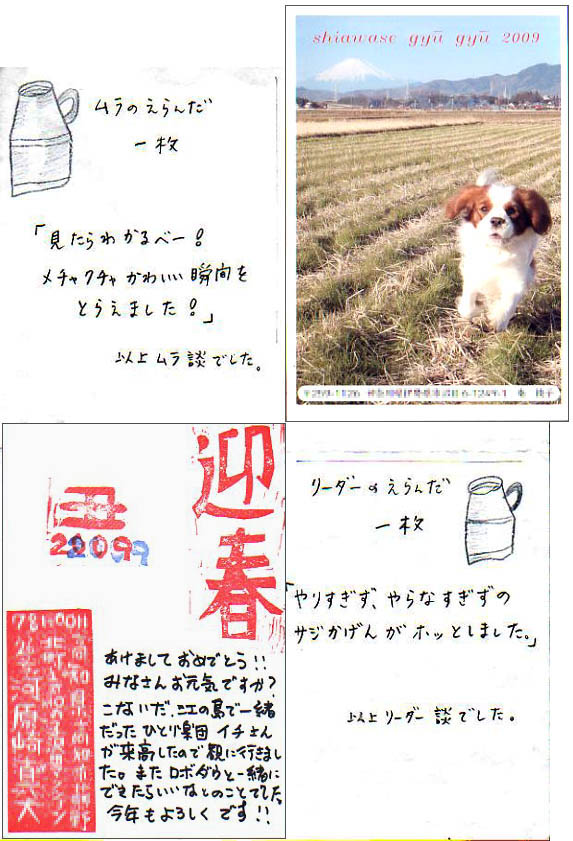 ムラのえらんだ
一枚
「見たらわかるべー!
メチャクチャ かわいい 瞬間を
とらえました!」
以上 ムラ 談でした。
shiawase gyū gyū 2009
迎春
丑
2009
あけまして おめでとう!!
みなさん お元気ですか?
こないだ、江の島で一緒
だった ひとり楽団 イチさん
が来高したので 観に行きまし
た。また ロボダウと一緒に
できたらいいな とのことでした。
今年も よろしく です!!
リーダーのえらんだ
一枚
「やりすぎず、やらなすぎずの
サジかげんが ホッとしました。」
以上 リーダー 談でした。